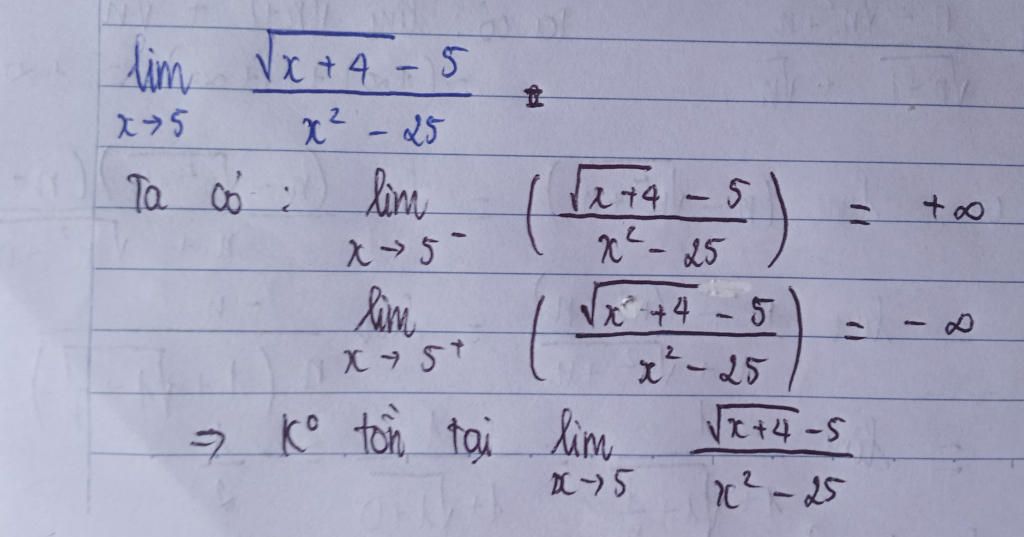 lim x→5 (√(x+4) − 5)/(x² − 25)
Ta có : lim x→5⁻ ( (√(x+4) − 5)/(x² − 25) ) = +∞
lim x→5⁺ ( (√(x+4) − 5)/(x² − 25) ) = −∞
⇒ K° tồn tại lim x→5 (√(x+4) − 5)/(x² − 25)